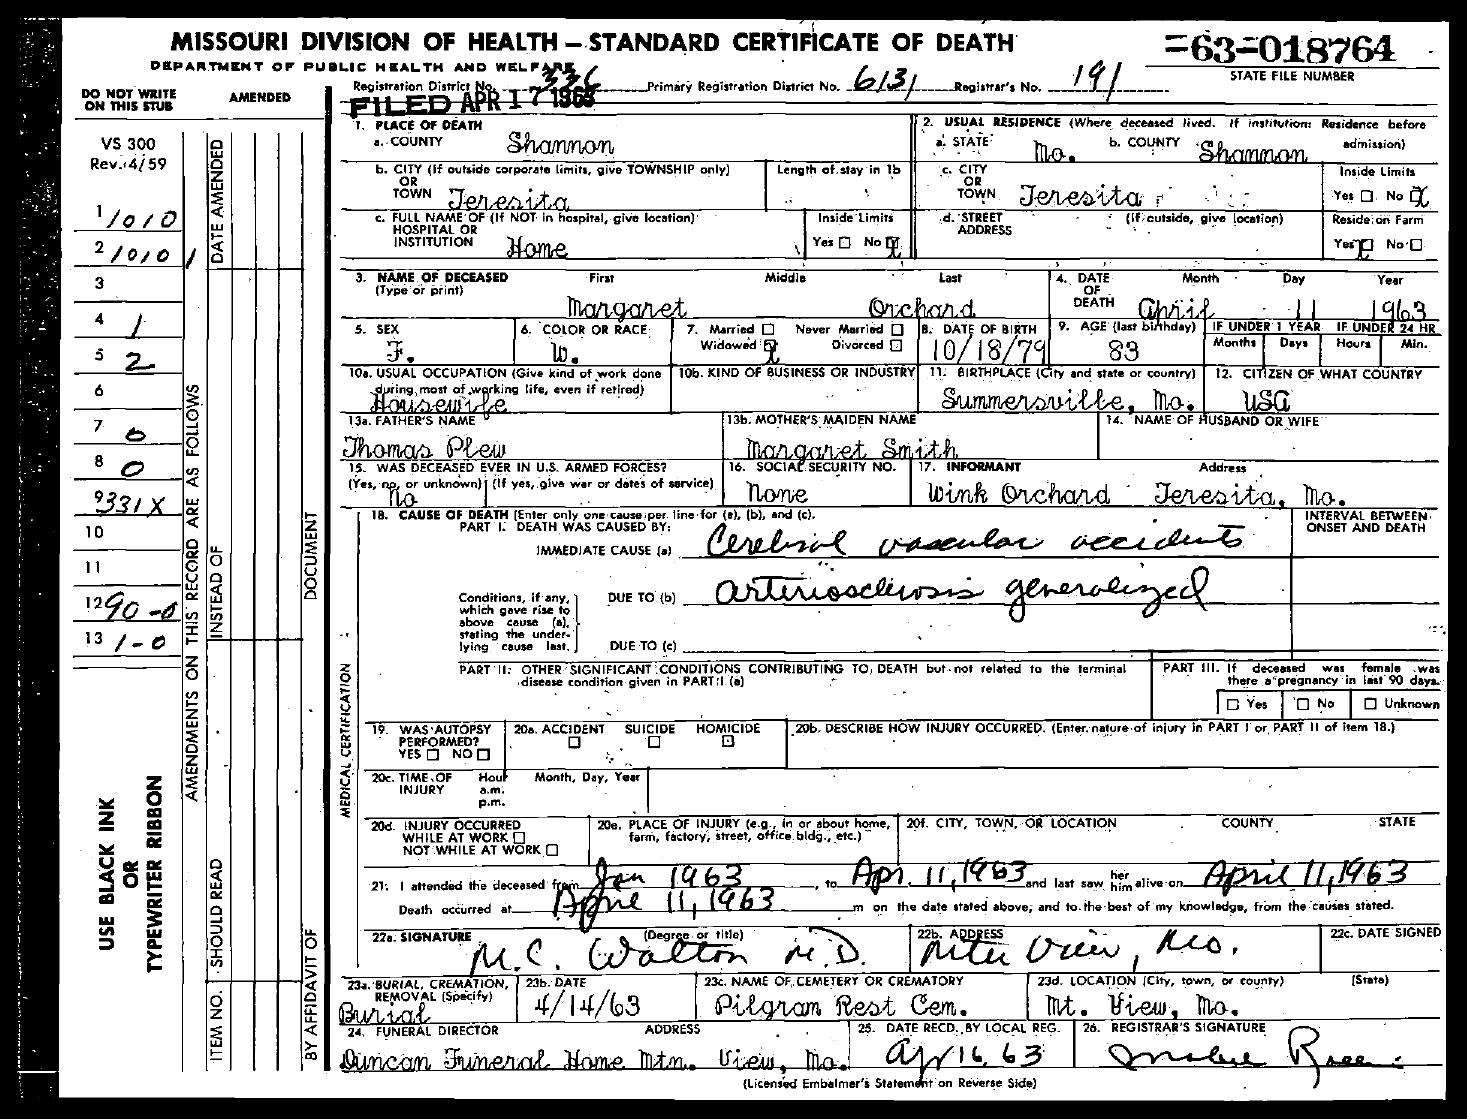 MISSOURI DIVISION OF HEALTH – STANDARD CERTIFICATE OF DEATH
=63=018764
DEPARTMENT OF PUBLIC HEALTH AND WELFARE
STATE FILE NUMBER
DO NOT WRITE ON THIS STUB
AMENDED
Registration District No. 336 Primary Registration District No. 6131 Registrar's No. 191
FILED APR 17 1963
VS 300
Rev. 4/59
1 1010
2 1010 1
3
4 1
5 2
6
7 0
8 0
9 331X
10
11
12 90-0
13 1-0
USE BLACK INK OR TYPEWRITER RIBBON
AMENDMENTS ON THIS RECORD ARE AS FOLLOWS
DATE AMENDED
INSTEAD OF
SHOULD READ
ITEM NO.
DOCUMENT
BY AFFIDAVIT OF
MEDICAL CERTIFICATION
1. PLACE OF DEATH
a. COUNTY Shannon
2. USUAL RESIDENCE (Where deceased lived. If institution: Residence before admission)
a. STATE Mo. b. COUNTY Shannon
b. CITY (If outside corporate limits, give TOWNSHIP only) OR TOWN Teresita
Length of stay in 1b
c. CITY OR TOWN Teresita
Inside Limits Yes ☐ No X
c. FULL NAME OF (If NOT in hospital, give location) HOSPITAL OR INSTITUTION Home
Inside Limits Yes ☐ No X
d. STREET ADDRESS (If outside, give location)
Reside on Farm Yes X No ☐
3. NAME OF DECEASED (Type or print) First Middle Last
Margaret Orchard
4. DATE OF DEATH Month Day Year
April 11 1963
5. SEX F.
6. COLOR OR RACE W.
7. Married ☐ Never Married ☐ Widowed X Divorced ☐
8. DATE OF BIRTH 10/18/79
9. AGE (last birthday) 83
IF UNDER 1 YEAR Months Days
IF UNDER 24 HR Hours Min.
10a. USUAL OCCUPATION (Give kind of work done during most of working life, even if retired) Housewife
10b. KIND OF BUSINESS OR INDUSTRY
11. BIRTHPLACE (City and state or country) Summersville, Mo.
12. CITIZEN OF WHAT COUNTRY USA
13a. FATHER'S NAME Thomas Plew
13b. MOTHER'S MAIDEN NAME Margaret Smith
14. NAME OF HUSBAND OR WIFE
15. WAS DECEASED EVER IN U.S. ARMED FORCES? (Yes, no, or unknown) (If yes, give war or dates of service) No
16. SOCIAL SECURITY NO. None
17. INFORMANT Address
Wink Orchard Teresita, Mo.
18. CAUSE OF DEATH (Enter only one cause per line for (a), (b), and (c).
PART I. DEATH WAS CAUSED BY:
INTERVAL BETWEEN ONSET AND DEATH
IMMEDIATE CAUSE (a) Cerebral vascular accidents
Conditions, if any, which gave rise to above cause (a), stating the underlying cause last.
DUE TO (b) Arteriosclerosis generalized
DUE TO (c)
PART II. OTHER SIGNIFICANT CONDITIONS CONTRIBUTING TO DEATH but not related to the terminal disease condition given in PART I (a)
PART III. If deceased was female was there a pregnancy in last 90 days.
☐ Yes ☐ No ☐ Unknown
19. WAS AUTOPSY PERFORMED? YES ☐ NO ☐
20a. ACCIDENT SUICIDE HOMICIDE
☐ ☐ ☐
20b. DESCRIBE HOW INJURY OCCURRED. (Enter nature of injury in PART I or PART II of item 18.)
20c. TIME OF INJURY Hour a.m. p.m. Month, Day, Year
20d. INJURY OCCURRED WHILE AT WORK ☐ NOT WHILE AT WORK ☐
20e. PLACE OF INJURY (e.g., in or about home, farm, factory, street, office bldg., etc.)
20f. CITY, TOWN, OR LOCATION COUNTY STATE
21. I attended the deceased from Jan 1963, to Apr. 11, 1963 and last saw her him alive on April 11, 1963
Death occurred at April 11, 1963 m on the date stated above, and to the best of my knowledge, from the causes stated.
22a. SIGNATURE (Degree or title) M.C. Walton M.D.
22b. ADDRESS View, Mo.
22c. DATE SIGNED
23a. BURIAL, CREMATION, REMOVAL (Specify) Burial
23b. DATE 4/14/63
23c. NAME OF CEMETERY OR CREMATORY Pilgram Rest Cem.
23d. LOCATION (City, town, or county) (State) Mt. View, Mo.
24. FUNERAL DIRECTOR ADDRESS
Duncan Funeral Home Mtn. View, Mo.
25. DATE RECD. BY LOCAL REG. Apr 16 63
26. REGISTRAR'S SIGNATURE
(Licensed Embalmer's Statement on Reverse Side)